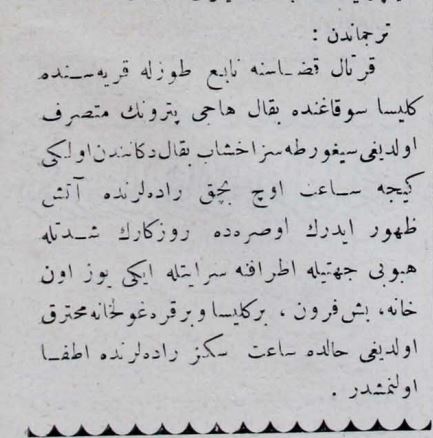 ترجماندن :
قرتال قضاسنه تابع طوزله قريه سنده
كليسا سوقاغنده بقال حاجى پترونك متصرف
اولديغى سيغورطه سز اخشاب بقال دكانندن اولكى
كيجه ساعت اوچ بچق راده لرنده آتش
ظهور ايدرك اوصره ده روزكارك شدتله
هبوبى جهتيله اطرافه سرايتله ايكى يوز اون
خانه، بش فرون ، بر كليسا و بر قره غولخانه محترق
اولديغى حالده ساعت سكز راده لرنده اطفا
اولنمشدر .